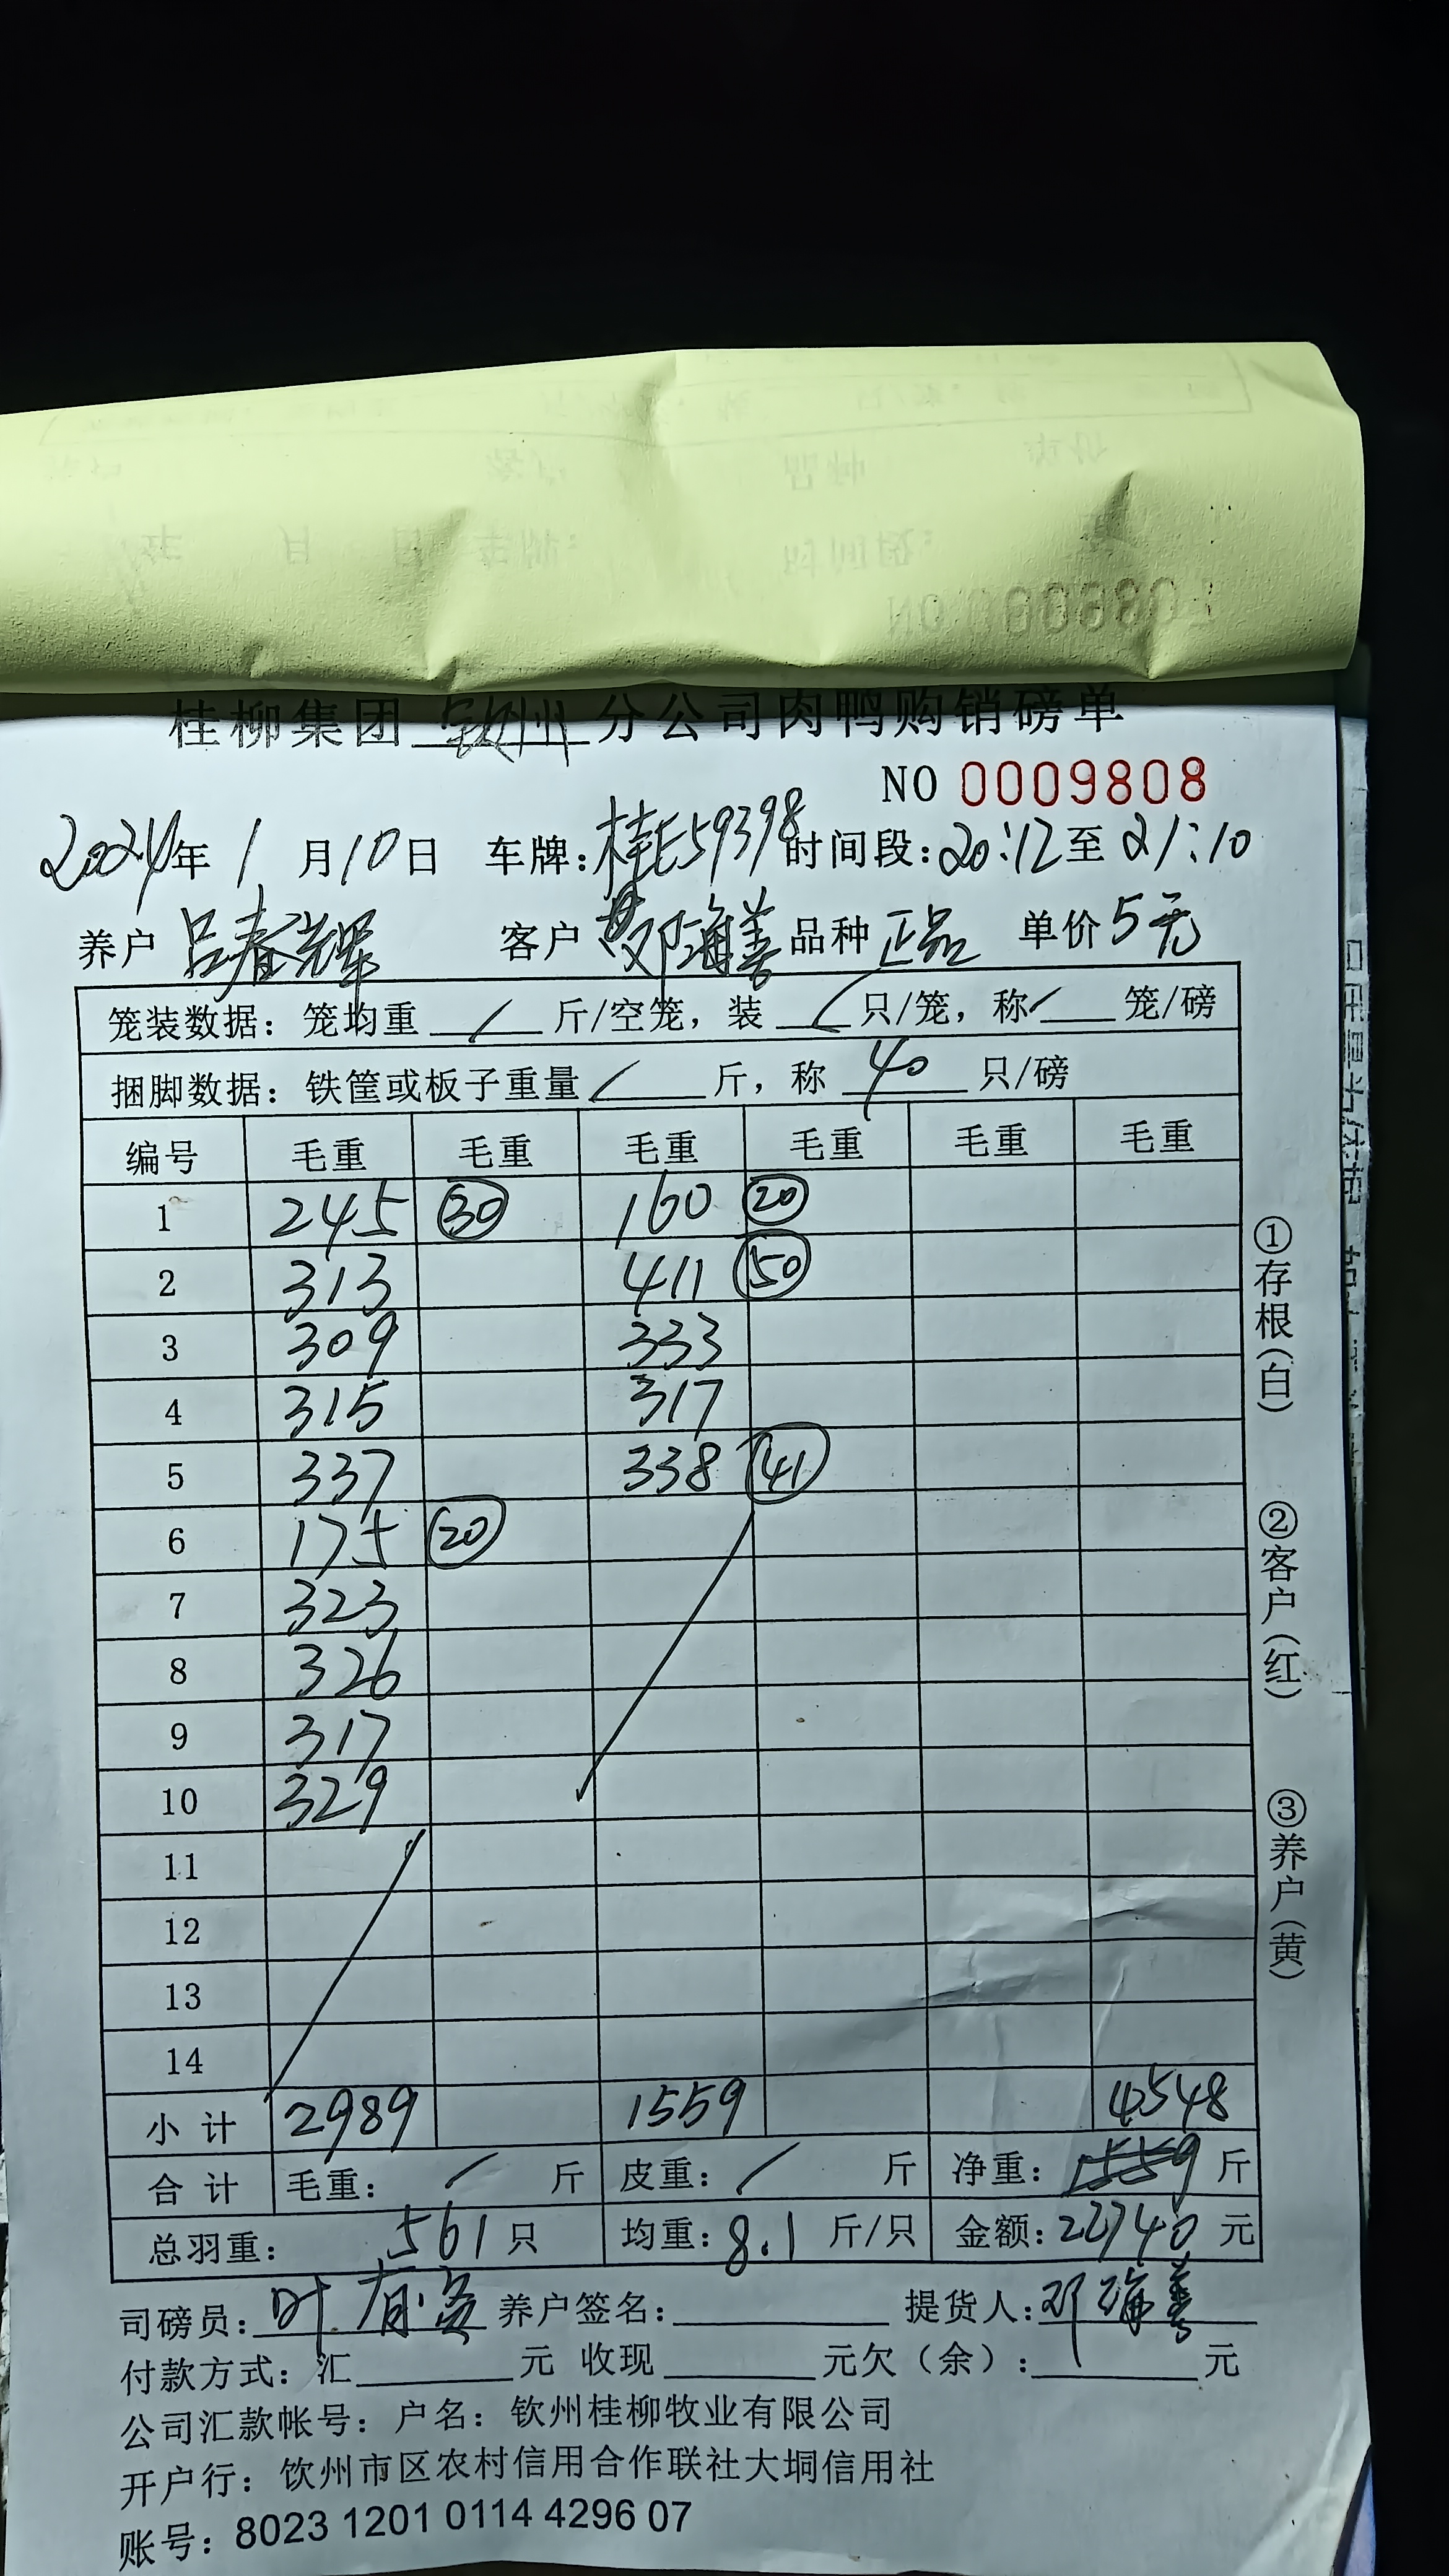 桂柳集团 钦州 分公司肉鸭购销磅单
NO 0009808
2024年 1 月 10 日 车牌:桂E59398 时间段:20:12至 21:10
养户 吕春辉 客户 邓海善 品种 正品 单价 5元
笼装数据: 笼均重 / 斤/空笼, 装 / 只/笼, 称 / 笼/磅
捆脚数据: 铁筐或板子重量 / 斤, 称 40 只/磅
编号 毛重 毛重 毛重 毛重 毛重 毛重
1 245 30 160 20
2 313 411 50
3 309 333
4 315 317
5 337 338 41
6 175 20
7 323
8 326
9 317
10 329
11
12
13
14
小计 2989 1559 4548
合计 毛重: / 斤 皮重: / 斤 净重: 1559 斤
总羽重: 561 只 均重: 8.1 斤/只 金额: 22740 元
司磅员: 叶 养户签名: 提货人: 邓海善
付款方式: 汇 元 收现 元欠（余）: 元
公司汇款帐号: 户名: 钦州桂柳牧业有限公司
开户行: 钦州市区农村信用合作联社大垌信用社
账号: 8023 1201 0114 4296 07
①存根(白)
②客户(红)
③养户(黄)